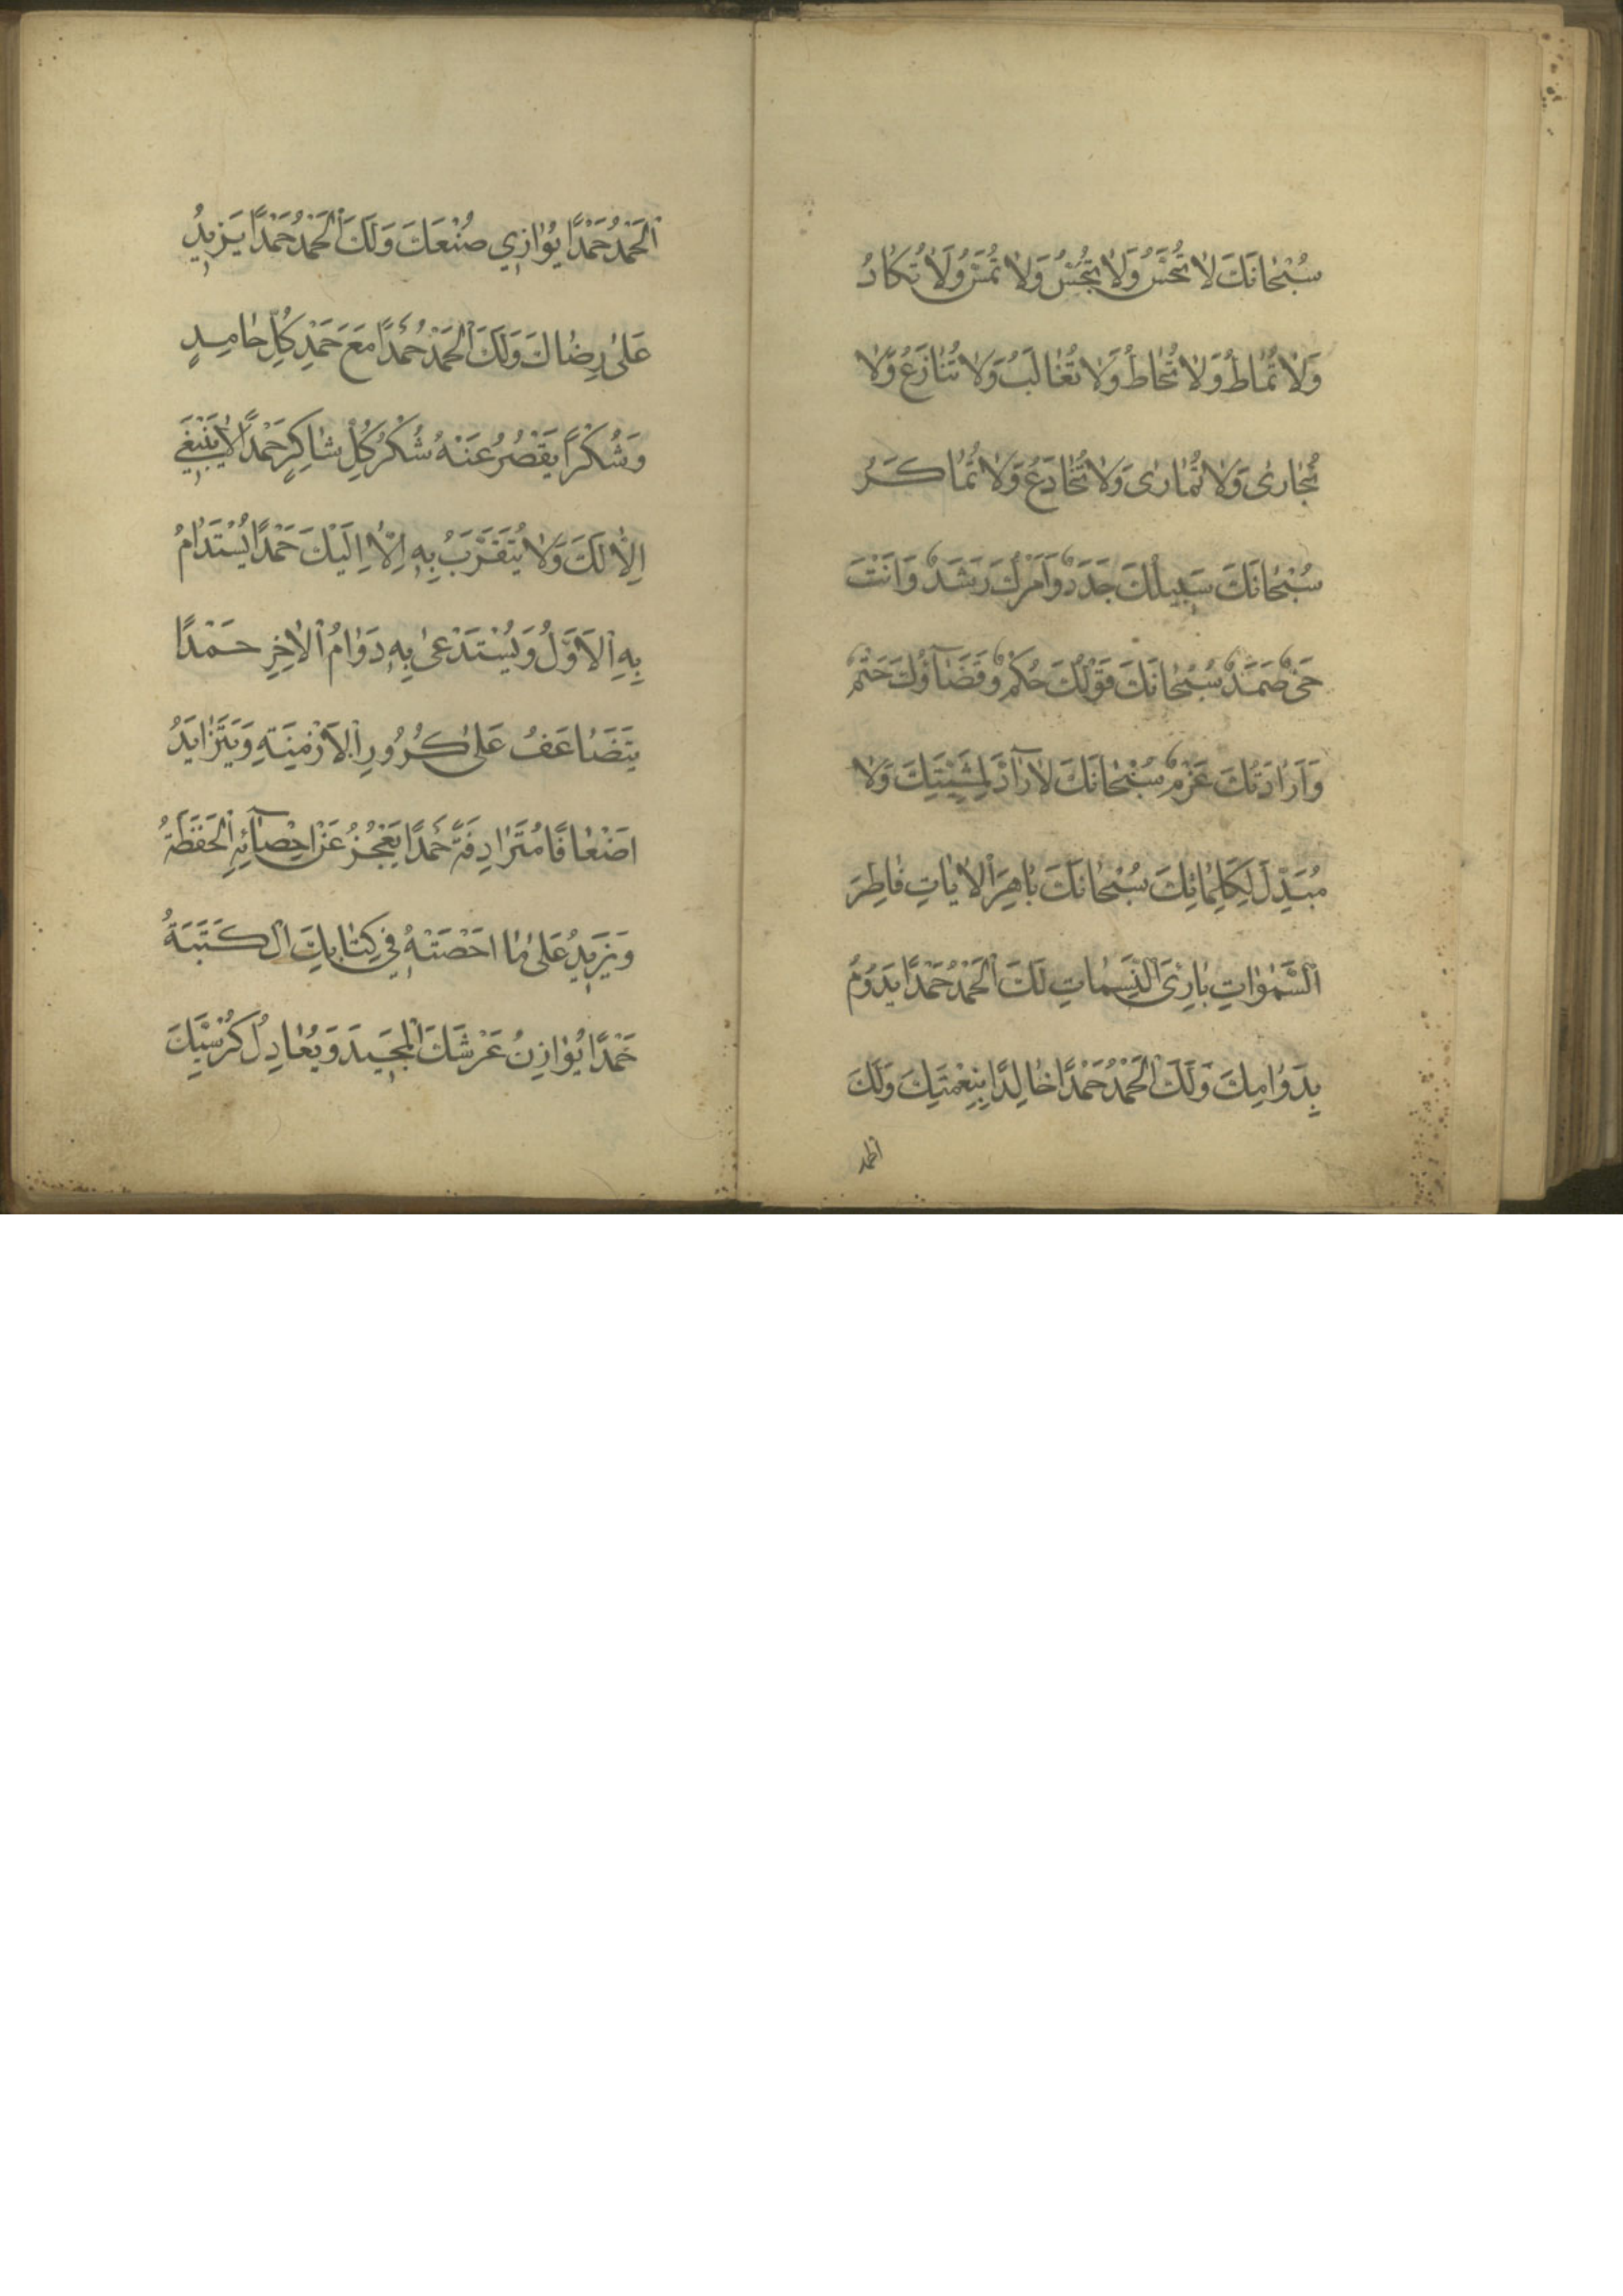 سُبْحَانَكَ لَا تُحَسُّ وَلَا تُجَسُّ وَلَا تُمَسُّ وَلَا تُكَادُ
وَلَا تُمَاطُ وَلَا تُحَاطُ وَلَا تُغَالَبُ وَلَا تُنَازَعُ وَلَا
تُجَارىٰ وَلَا تُمَارىٰ وَلَا تُخَادَعُ وَلَا تُمَاكَرُ
سُبْحَانَكَ سَبِيلُكَ جَدَدٌ وَاَمْرُكَ رَشَدٌ وَاَنْتَ
حَيٌّ صَمَدٌ سُبْحَانَكَ قَوْلُكَ حُكْمٌ وَقَضَآؤُكَ حَتْمٌ
وَاِرَادَتُكَ عَزْمٌ سُبْحَانَكَ لَا رَآدَّ لِمَشِيَّتِكَ وَلَا
مُبَدِّلَ لِكَلِمَاتِكَ سُبْحَانَكَ بَاهِرَ الْاٰيَاتِ فَاطِرَ
السَّمٰوَاتِ بَارِئَ النَّسَمَاتِ لَكَ الْحَمْدُ حَمْدًا يَدُومُ
بِدَوَامِكَ وَلَكَ الْحَمْدُ حَمْدًا خَالِدًا بِنِعْمَتِكَ وَلَكَ
الحمد
الْحَمْدُ حَمْدًا يُوَازِي صُنْعَكَ وَلَكَ الْحَمْدُ حَمْدًا يَزِيدُ
عَلىٰ رِضَاكَ وَلَكَ الْحَمْدُ حَمْدًا مَعَ حَمْدِ كُلِّ حَامِدٍ
وَشُكْرًا يَقْصُرُ عَنْهُ شُكْرُ كُلِّ شَاكِرٍ حَمْدًا لَا يَنْبَغِي
اِلَّا لَكَ وَلَا يُتَقَرَّبُ بِهِ اِلَّا اِلَيْكَ حَمْدًا يُسْتَدَامُ
بِهِ الْاَوَّلُ وَيُسْتَدْعىٰ بِهِ دَوَامُ الْاٰخِرِ حَمْدًا
يَتَضَاعَفُ عَلىٰ كُرُورِ الْاَزْمِنَةِ وَيَتَزَايَدُ
اَضْعَافًا مُتَرَادِفَةً حَمْدًا يَعْجُزُ عَنْ اِحْصَآئِهِ الْحَفَظَةُ
وَيَزِيدُ عَلىٰ مَا اَحْصَتْهُ فِي كِتَابِكَ الْكَتَبَةُ
حَمْدًا يُوَازِنُ عَرْشَكَ الْمَجِيدَ وَيُعَادِلُ كُرْسِيَّكَ